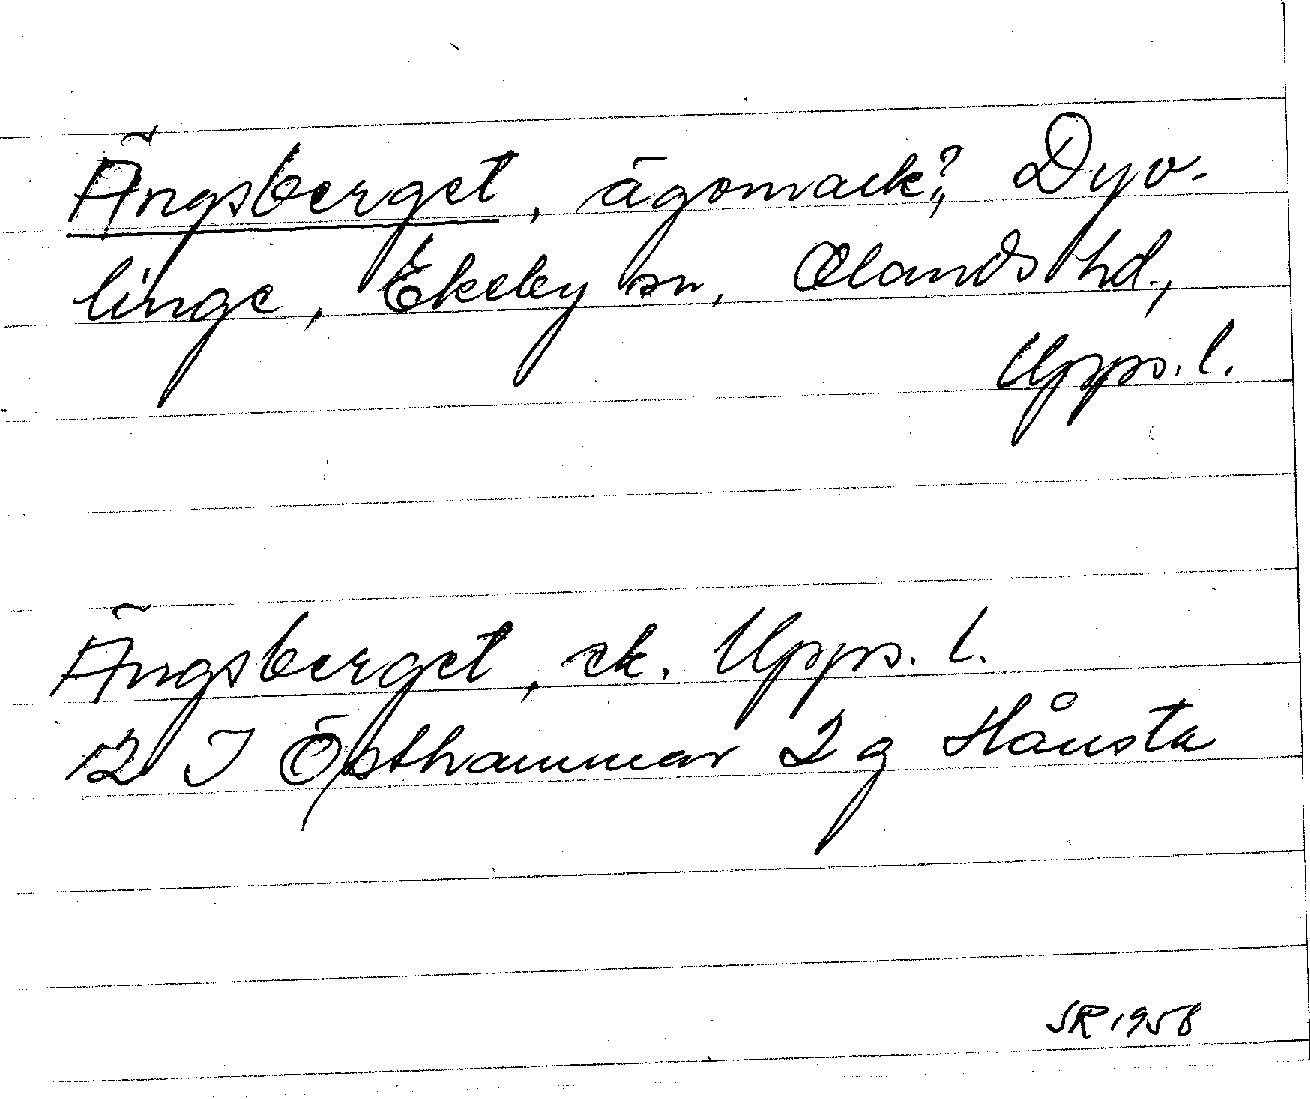 Ängsberget, ägomark?, Dyv-
linge, Ekeby sn, Olands hd,
Upps. l.
Ängsberget, ek. Upps. l.
12 I Östhammar 2 g Hånsta
SR 1958